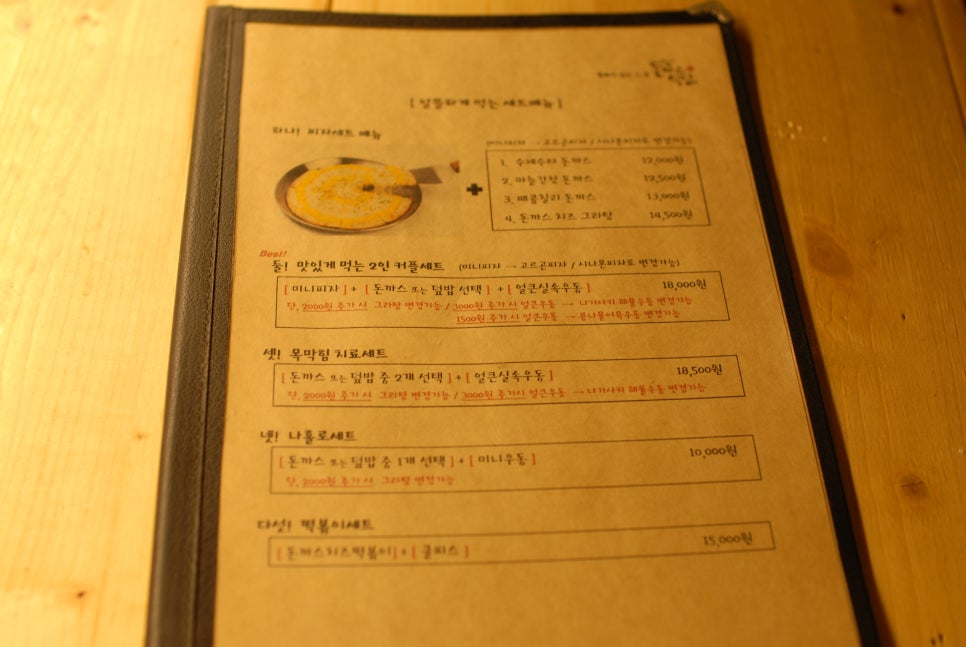 [ 알뜰하게 먹는 세트메뉴 ]
하나! 피자세트 메뉴
(미니피자 → 고르곤피자 / 시나몬피자로 변경가능)
1. 수제수타 돈까스 12,000원
2. 마늘간장 돈까스 12,500원
3. 매콤칠리 돈까스 13,000원
4. 돈까스 치즈 그라탕 14,500원
Best!
둘! 맛있게 먹는 2인 커플세트 (미니피자 → 고르곤피자 / 시나몬피자로 변경가능)
[ 미니피자 ] + [ 돈까스 또는 덮밥 선택 ] + [ 얼큰실속우동 ] 18,000원
단, 2000원 추가 시 그라탕 변경가능 / 3000원 추가시 얼큰우동 → 나가사키 해물우동 변경가능
1500원 추가시 얼큰우동 → 콩나물어묵우동 변경가능
셋! 목막힘 치료세트
[ 돈까스 또는 덮밥 중 2개 선택 ] + [ 얼큰실속우동 ] 18,500원
단, 2000원 추가 시 그라탕 변경가능 / 3000원 추가시 얼큰우동 → 나가사키 해물우동 변경가능
넷! 나홀로세트
[ 돈까스 또는 덮밥 중 1개 선택 ] + [ 미니우동 ] 10,000원
단, 2000원 추가 시 그라탕 변경가능
다섯! 떡볶이세트
[ 돈까스치즈떡볶이] + [ 쿨피스 ] 15,000원